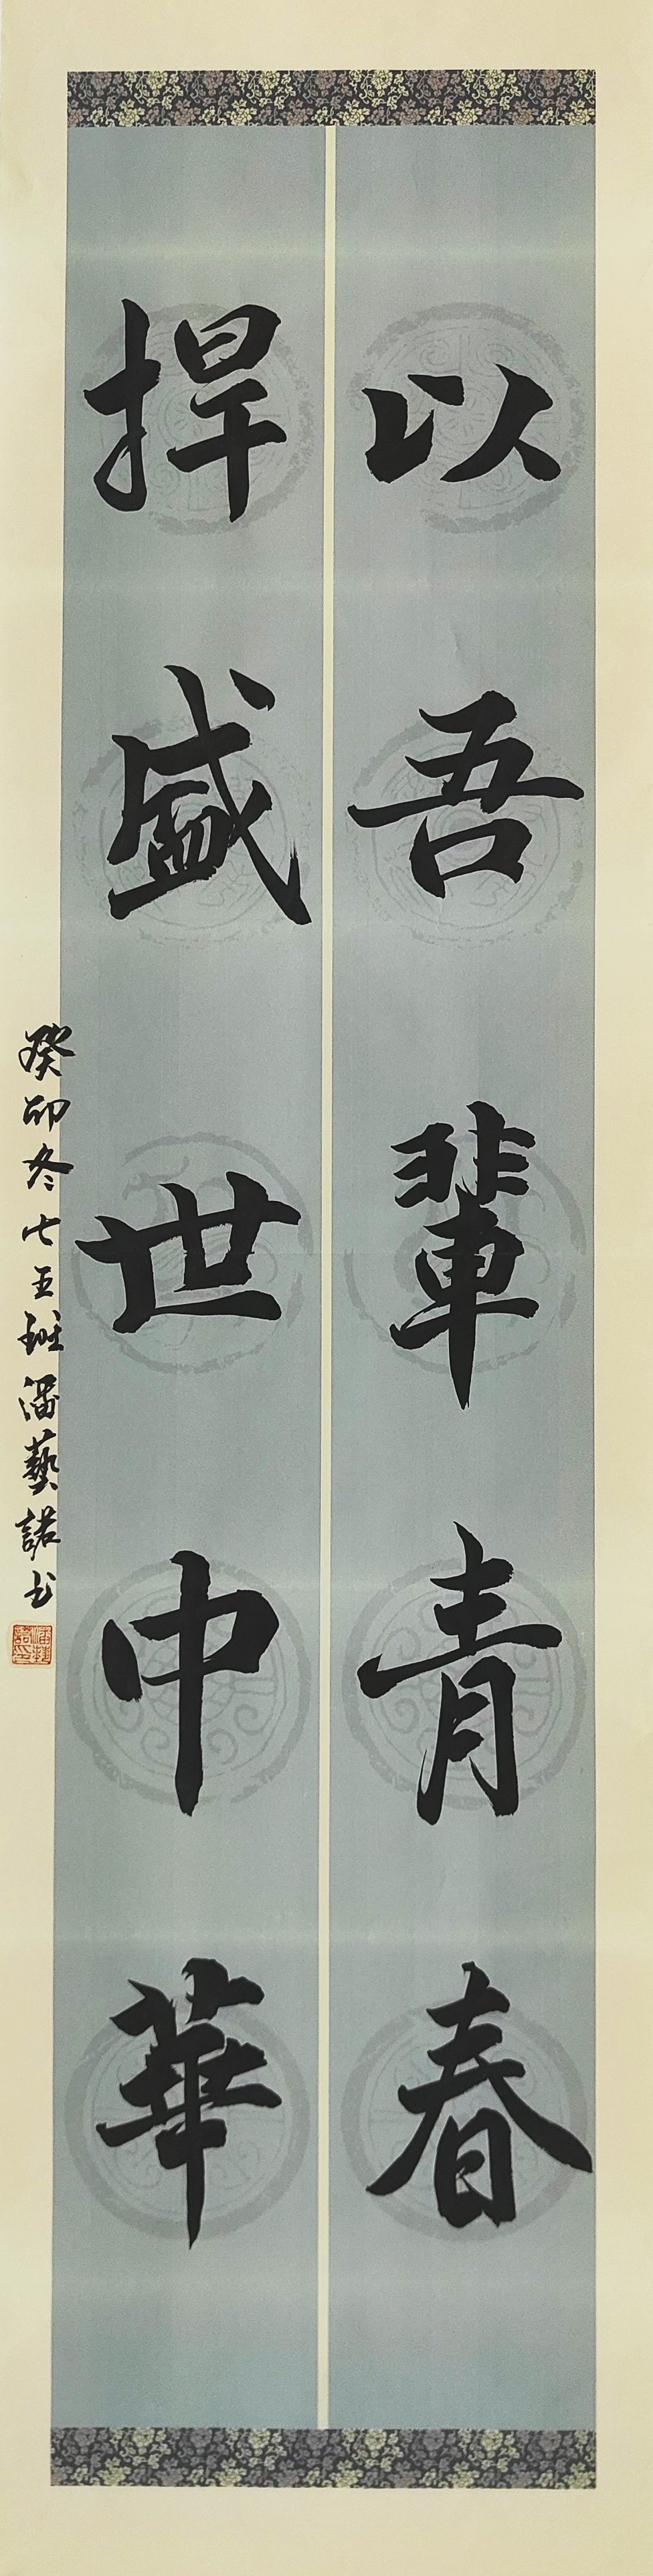 以吾輩青春
捍盛世中華
癸卯冬七五班潘藝諾书